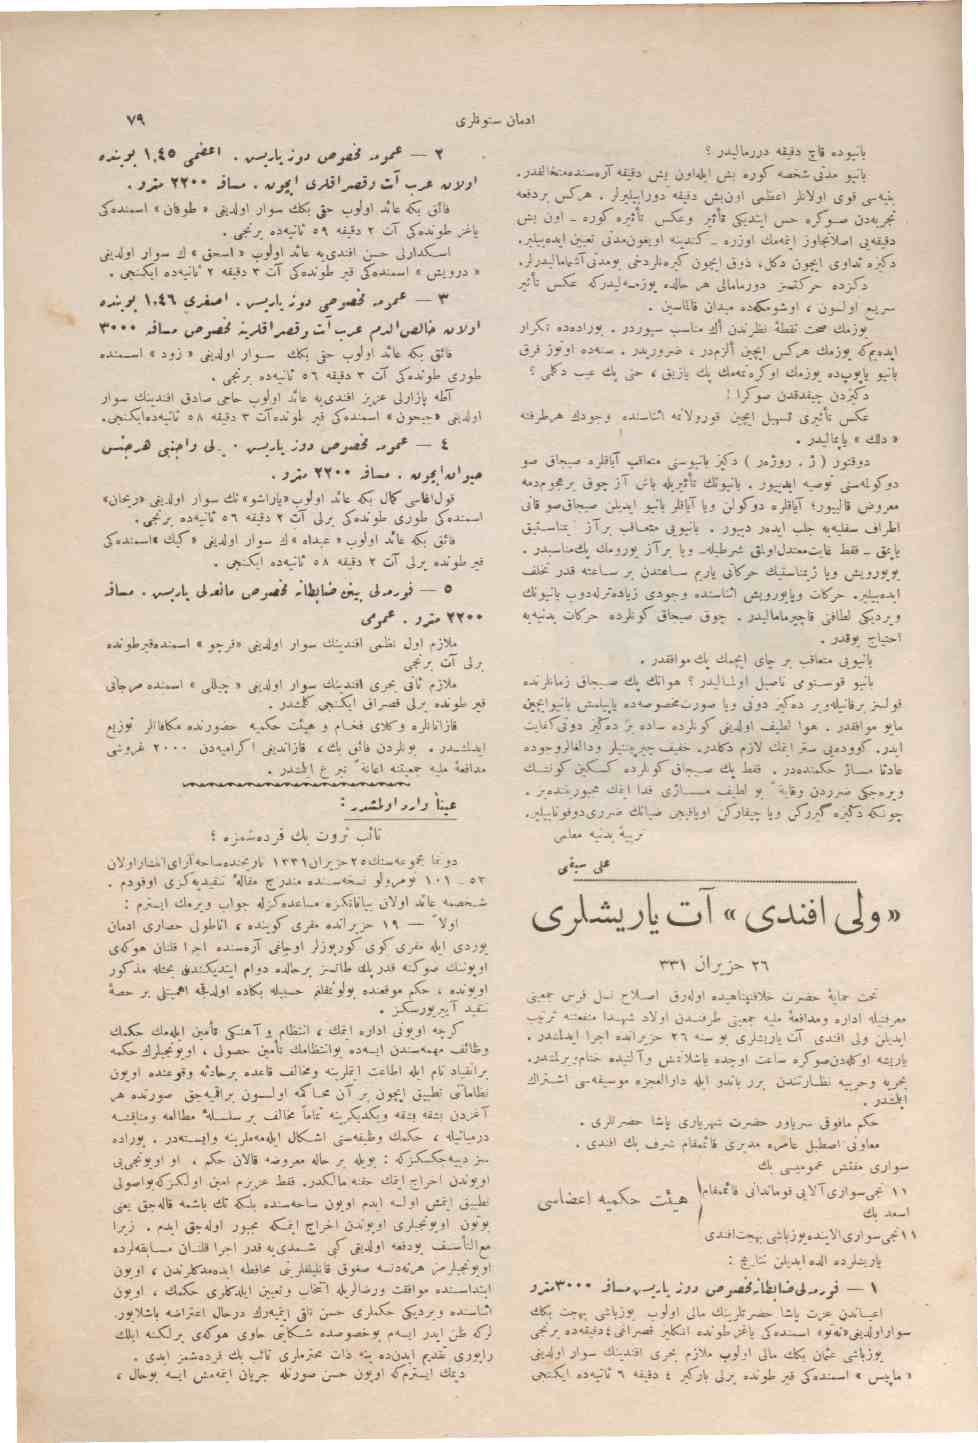 ادمان ستونلری
٧٩
بانیوده قاچ دقیقه دورمالیدر ؟
بانیو مدتی شخصه كوره بش ایله اون بش دقیقه آره‌سنده متخالفدر.
بنیه‌سی قوی اولانلر اعظمی اون بش دقیقه دورابیلیرلر . هركس بردفعه
تجربه‌دن صوكره حس ایتدیكی تأثیر وعكس تأثیره كوره ـ اون بش
دقیقه‌یی اصلا تجاوز ایتمه‌مك اوزره ـ كندینه اویغون مدتی تعیین ایده‌بیلیر.
دكزه تداوی ایچون دكل، ذوق ایچون كیره‌نلر دخی بومدتی آشمامالیدرلر.
دكزده حركتسز دورمامالی هر حالده یوزمه‌لیدركه عكس تأثیر
سریع اولسون ، اوشومكده میدان قالماسین .
یوزمك صحت نقطهٔ نظرندن أك مناسب سپوردر . بوراده‌ده تكرار
ایده‌یم‌كه یوزمك هركس ایچین ألزمدر ، ضروریدر . سنه‌ده اوتوز قرق
بانیو یاپوب‌ده یوزمك اوكره‌نمه‌مك پك یازیق ، حتی پك عیب دكلمی ؟
دكزدن چیقدقدن صوكرا !
عكس تأثیری تسهیل ایچین قورولانمه اثناسنده وجودك هرطرفنه
« دلك » یاپمالیدر .
دوقتور ( ژ . روژه‌ر ) دكیز بانیوسنی متعاقب آیاقلره صیجاق صو
دوكولمه‌سنی توصیه ایدییور . بانیونك تأثیریله باش آز چوق برهجوم‌دمه
معروض قالییور؛ آیاقلره دوكولن ویا آیاقلر بانیو ایدیلن صیجاق‌صو قانی
اطراف سفلیه‌یه جلب ایده‌ر دییور . بانیویی متعاقب برآز جمناستیق
یاپمق ـ فقط غایت معتدل اولمق شرطیله‌ـ ویا برآز یورومك پك مناسبدر .
بویورویش ویا ژیمناستیك حركاتی یاریم ساعتدن بر ساعته قدر تخلف
ایده‌بیلیر. حركات ویا یورویش اثناسنده وجودی زیاده ترله‌دوب بانیونك
ویردیكی لطافتی قاچیرمامالیدر . چوق صیجاق كونلرده حركات بدنیه‌یه
احتیاج یوقدر .
بانیویی متعاقب بر چای ایچمك پك موافقدر .
بانیو قوستومی ناصیل اولمالیدر ؟ هوانك پك صیجاق زمانلرنده
قولسز برفانیله‌ویر ده‌كیز دونی ویا صورت مخصوصه‌ده یاپیلمش بانیو ایچین
مایو موافقدر . هوا لطیف اولدیغی كونلرده ساده بر ده‌كیز دونی كفایت
ایدر. كووده‌یی ستر ایتمك لازم دكلدر. خفیف چیرپنتیلر ودالغالر وجوده
عادتا مساژ حكمنده‌در . فقط پك صیجاق كونلرده كسكین كونشك
ویره‌جكی ضرردن وقایةً بو لطیف مساژی فدا ایتمك مجبوریتنده‌یز .
چونكه دكیزه گیرركن ویا چیقاركن اویاقیجی ضیانك ضرری دوقونابیلیر.
تربیهٔ بدنیه معلمی
علی سیفی
« ولی افندی » آت یاریشلری
٢٦ حزیران ٣٣١
تحت حمایهٔ حضرت خلافتپناهیده اوله‌رق اصلاح نسل فرس جمعیتی
معرفتیله اداره ومدافعهٔ ملیه جمعیتی طرفندن اولاد شهدا منفعتنه ترتیب
ایدیلن ولی افندی آت یاریشلری بو سنه ٢٦ حزیرانده اجرا ایدلمشدر .
یاریشه اوكله‌دن صوكره ساعت اوچده باشلانمش وآلتیده ختام ویرلمشدر.
بحریه وحربیه نظارتندن برر باندو ایله دارالعجزه موسیقه‌سی اشتراك
ایتمشدر .
حكم مافوقی سریاور حضرت شهریاری پاشا حضرتلری .
معاونی اصطبل عامره مدیری قائممقام شرف بك افندی .
سواری مفتش عمومیسی بك
١١ نجی سواری آلایی قوماندانی قائممقام
اسعد بك
١١نجی سواری آلاینده یوزباشی بهجت افندی
هیئت حكمیه اعضاسی
یاریشلرده الده ایدیلن نتایج :
١ — قوردلی ضابطانه مخصوص دوز یاریس. مسافه ٣٠٠٠مترو
اعیاندن عزت پاشا حضرتلرینك مالی اولوب یوزباشی بهجت بكك
سوار اولدیغی «ته‌تو» اسمنده‌كی یاغز طونده انكلیز قصراغی ٤ دقیقه‌ده برنجی
یوزباشی عثمان بكك مالی اولوب ملازم بحری افندینك سوار اولدیغی
« ماپیس » اسمنده‌كی قیر طونده یرلی باركیر ٤ دقیقه ٦ ثانیه‌ده ایكنجی
٢ — عمومه مخصوص دوز یاریس . اعظمی ١,٤٥ بوینده
اولان عرب آت وقصراقلری ایچون . مسافه ٢٢٠٠ مترو .
فائق بكه عائد اولوب حقی بكك سوار اولدیغی « طوفان » اسمنده‌كی
یاغز طونده‌كی آت ٢ دقیقه ٥٩ ثانیه‌ده برنجی .
اسكدارلی حسن افندی‌یه عائد اولوب « اسحق » ك سوار اولدیغی
« درویش » اسمنده‌كی قیر طونده‌كی آت ٣ دقیقه ٢ ثانیه‌ده ایكنجی .
٣ — عمومه مخصوصی دوز یاریس . اصغری ١,٤٦ بوینده
اولان خالص‌الدم عرب آت وقصراقلرینه مخصوص مسافه ٣٠٠٠
فائق بكه عائد اولوب حقی بكك سوار اولدیغی « زود » اسمنده
طوری طونده‌كی آت ٣ دقیقه ٥٦ ثانیه‌ده برنجی .
آطه پازارلی عزیز افندی‌یه عائد اولوب حاجی صادق افندینك سوار
اولدیغی «جیحون » اسمنده‌كی قیر طونده آت ٣ دقیقه ٥٨ ثانیه‌ده‌ایكنجی.
٤ — عمومه مخصوص دوز یاریس . یرلی واجنبی هرجنس
حیوان ایچون . مسافه ٢٢٠٠ مترو .
قول‌اغاسی كمال بكه عائد اولوب «یاراشو» نك سوار اولدیغی «ریحان»
اسمنده‌كی طوری طونده‌كی یرلی آت ٢ دقیقه ٥٦ ثانیه‌ده برنجی.
فائق بكه عائد اولوب « عبداه » ك سوار اولدیغی « كیك » اسمنده‌كی
قیر طونده یرلی آت ٢ دقیقه ٥٨ ثانیه‌ده ایكنجی .
٥ — قوردلی بیتن ضابطانه مخصوص مانعه‌لی یاریس . مسافه
٢٢٠٠ مترو . عمومی
ملازم اول نظمی افندینك سوار اولدیغی «قرچو » اسمنده‌قیرطونده
یرلی آت برنجی
ملازم ثانی بحری افندینك سوار اولدیغی « چیللی » اسمنده مرجانی
قیر طونده یرلی قصراق ایكنجی كلمشدر .
قازانانلره وكلای فخام و هیئت حكمیه حضورنده مكافاتلر توزیع
ایدلمشدر . بونلردن فائق بك، قازاندیغی اكرامیه‌دن ٢٠٠٠ غروشی
مدافعهٔ ملیه جمعیتنه اعانةً تبرع ایتمشدر .
عیناً وارد اولمشدر :
تائب ثروت بك قرده‌شمزه ؛
دونما مجموعه‌سنك ٢٥ حزیران ١٣٣١ تاریخنده ساحه‌آرای انتشار اولان
٥٣ ـ ١٠١ نومرولو نسخه‌سنده مندرج مقالهٔ تنقیدیه‌كزی اوقودم .
شخصمه عائد اولان بیاناتكزه مساعده‌كزله جواب ویرمك ایسترم :
اولاً — ١٩ حزیرانده مقری كوینده ، اناطولی حصاری ادمان
یوردی ایله مقری كوی كوربوزلر اوجاغی آره‌سنده اجرا قلنان هوكه‌ی
اویوننك صوكنه قدر پك طاتسز برحالده دوام ایتدیكندن بحثله مذكور
اویونده ، حكم موقعنده بولونمقلغم حسبیله بكاده اولدقجه اهمیتلی بر حصهٔ
تنقید آییریورسكز .
كرچه اویونی اداره ایتمك ، انتظام و آهنكی تأمین ایله‌مك حكمك
وظائف مهمه‌سندن ایسه‌ده بوانتظامك تأمین حصولی ، اویونجیلرك حكمه
برانقیاد تام ایله اطاعت ایتملرینه ومخالف قاعده برحادثه وقوعنده اویون
نظاماتی تطبیق ایچون بر آن محاكمه اولسون براقمیه‌جق صورتده هر
آغزدن بشقه بشقه ویكدیكرینه تماماً مخالف بر سلسلهٔ مطالعه ومناقشه
درمیانیله ، حكمك وظیفه‌سنی اشكال ایله‌مه‌ملرینه وابسته‌در . بوراده
سز دییه‌جكسكزكه : بویله بر حاله معروض قالان حكم ، او اویونجی‌یی
اویوندن اخراج ایتمك حقنه مالكدر. فقط عزیزم امین اولكزكه‌بواصولی
تطبیق ایتمش اولسه ایدم اویون ساحه‌سنده یلكه تك باشمه قاله‌جق یعنی
بوتون اویونجیلری اویوندن اخراج ایتمكه مجبور اوله‌جق ایدم . زیرا
مع‌التأسف بودفعه اولدیغی كبی شمدی‌یه قدر اجرا قلنان مسابقه‌لرده
اویونجیلرمز هرنه‌دنسه صغوق قانلیلقلرینی محافظه ایده‌مدكلرندن ، اویون
ابتداسنده موافقت ورضالریله انتخاب وتعیین ایلدكلری حكمك ، اویون
اثناسنده ویردیكی حكملری حسن تلقی ایتمیه‌رك درحال اعتراضه باشلایور.
لركه ظن ایدر ایسه‌م بوخصوصده شكایتی حاوی هوكه‌ی برلكنه ایلك
راپوری تقدیم ایدن‌ده ینه ذات محترملری تائب بك قرده‌شمز ایدی .
دیمك ایسترم‌كه اویون حسن صورتله جریان ایتمه‌مش ایسه بوحال ،